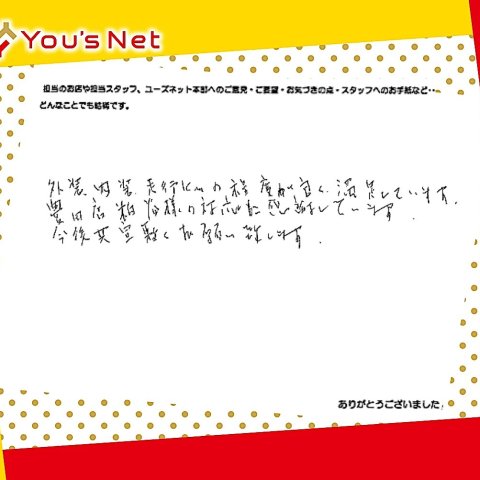 You's Net
担当のお店や担当スタッフ、ユーズネット本部へのご意見・ご要望・お気づきの点・スタッフへのお手紙など‥
どんなことでも結構です。
外装、内装、走行kmの程度が良く、満足しています。
豊田店 皆様の対応に感謝しています。
今後共宜敷くお願い致します。
ありがとうございました